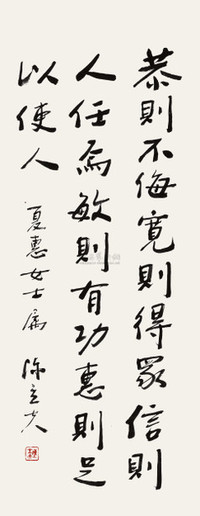 恭則不侮寬則得眾信則
人任焉敏則有功惠則足
以使人
夏惠女士屬 陳立夫